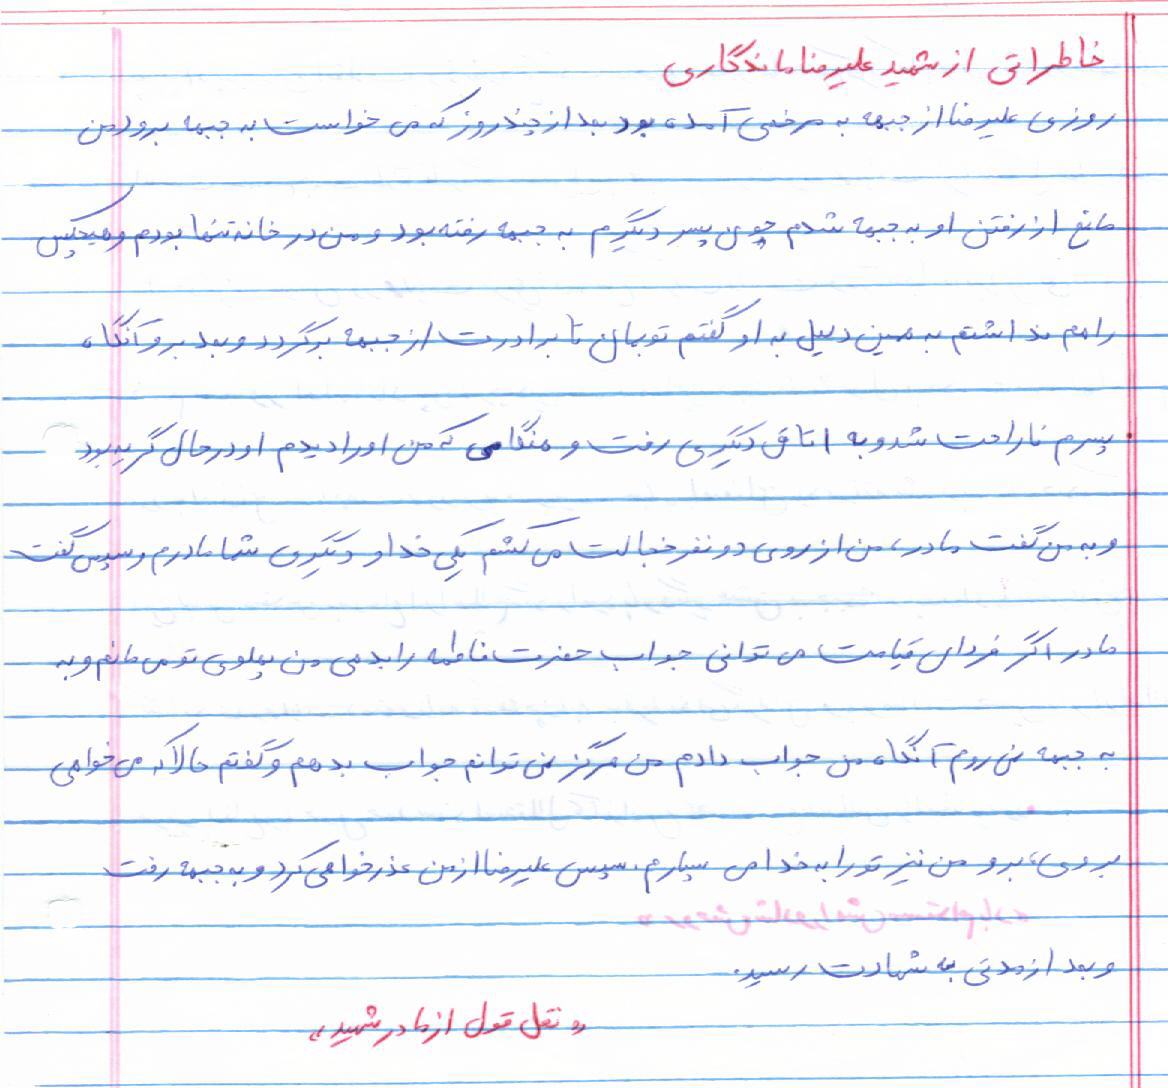 خاطراتی از شهید علیرضا ماندگاری
روزی علیرضا از جبهه به مرخصی آمده بود بعد از چند روز که می خواست به جبهه برود من
مانع از رفتن او به جبهه شدم چون پسر دیگرم به جبهه رفته بود و من در خانه تنها بودم و هیچکس
را هم نداشتم به همین دلیل به او گفتم تو بمان تا برادرت از جبهه برگردد و بعد برو آنگاه
پسرم ناراحت شد و به اتاق دیگری رفت و هنگامی که من او را دیدم او در حال گریه بود
و به من گفت مادر، من از روی دو نفر خجالت می کشم یکی خدا و دیگری شما مادرم و سپس گفت
مادر اگر فردای قیامت می توانی جواب حضرت فاطمه را بدهی من پهلوی تو می مانم و به
به جبهه نمی روم آنگاه من جواب دادم من هرگز نمی توانم جواب بدهم و گفتم حالا که می خواهی
بروی، برو من نیز تو را به خدا می سپارم. سپس علیرضا از من عذرخواهی کرد و به جبهه رفت
و بعد از مدتی به شهادت رسید.
«نقل قول از مادر شهید»